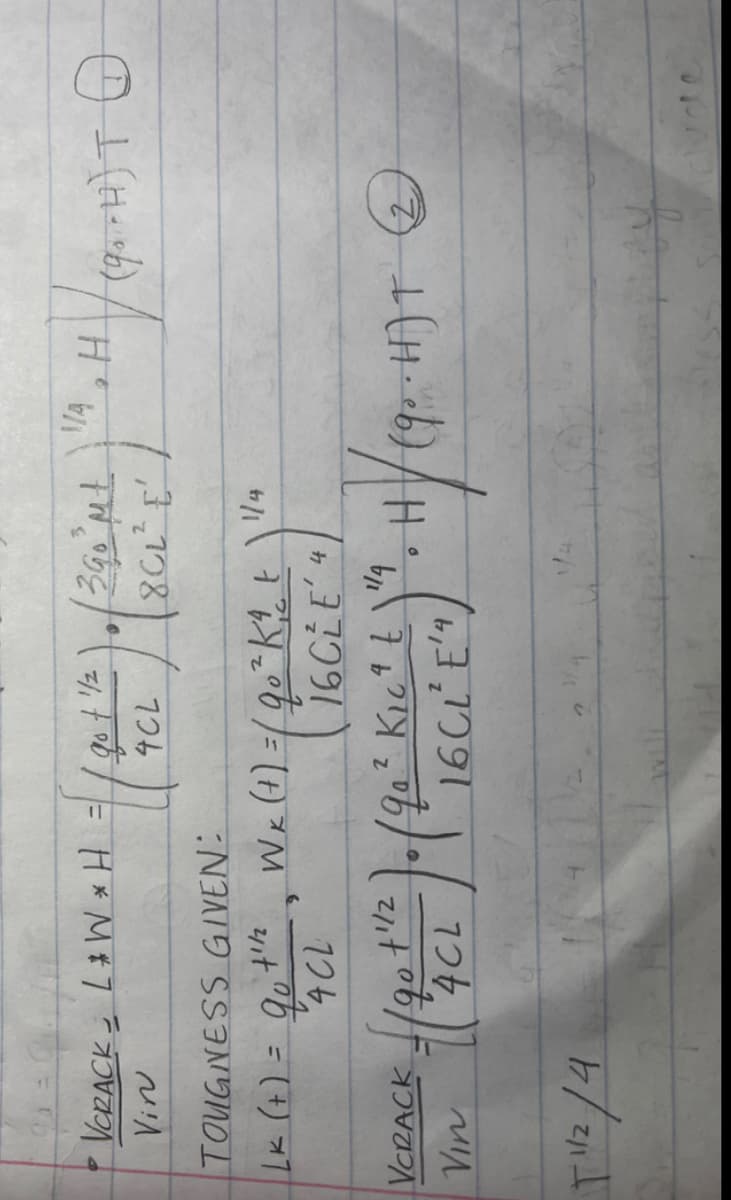 • VCRACK = L*W*H = [(q₀t^1/2 / 4CL)·(3q₀³μt / 8CL²E')^1/4 · H] / (q₀·H)T ①
Vin
TOUGNESS GIVEN:
LK(t) = q₀t^1/2 / 4CL, WK(t) = (q₀²KIC⁴t / 16CL²E'⁴)^1/4
VCRACK / Vin = [(q₀t^1/2 / 4CL)·(q₀²KIC⁴t / 16CL²E'⁴)^1/4 · H] / (q₀·H)T ②
T^1/2/4